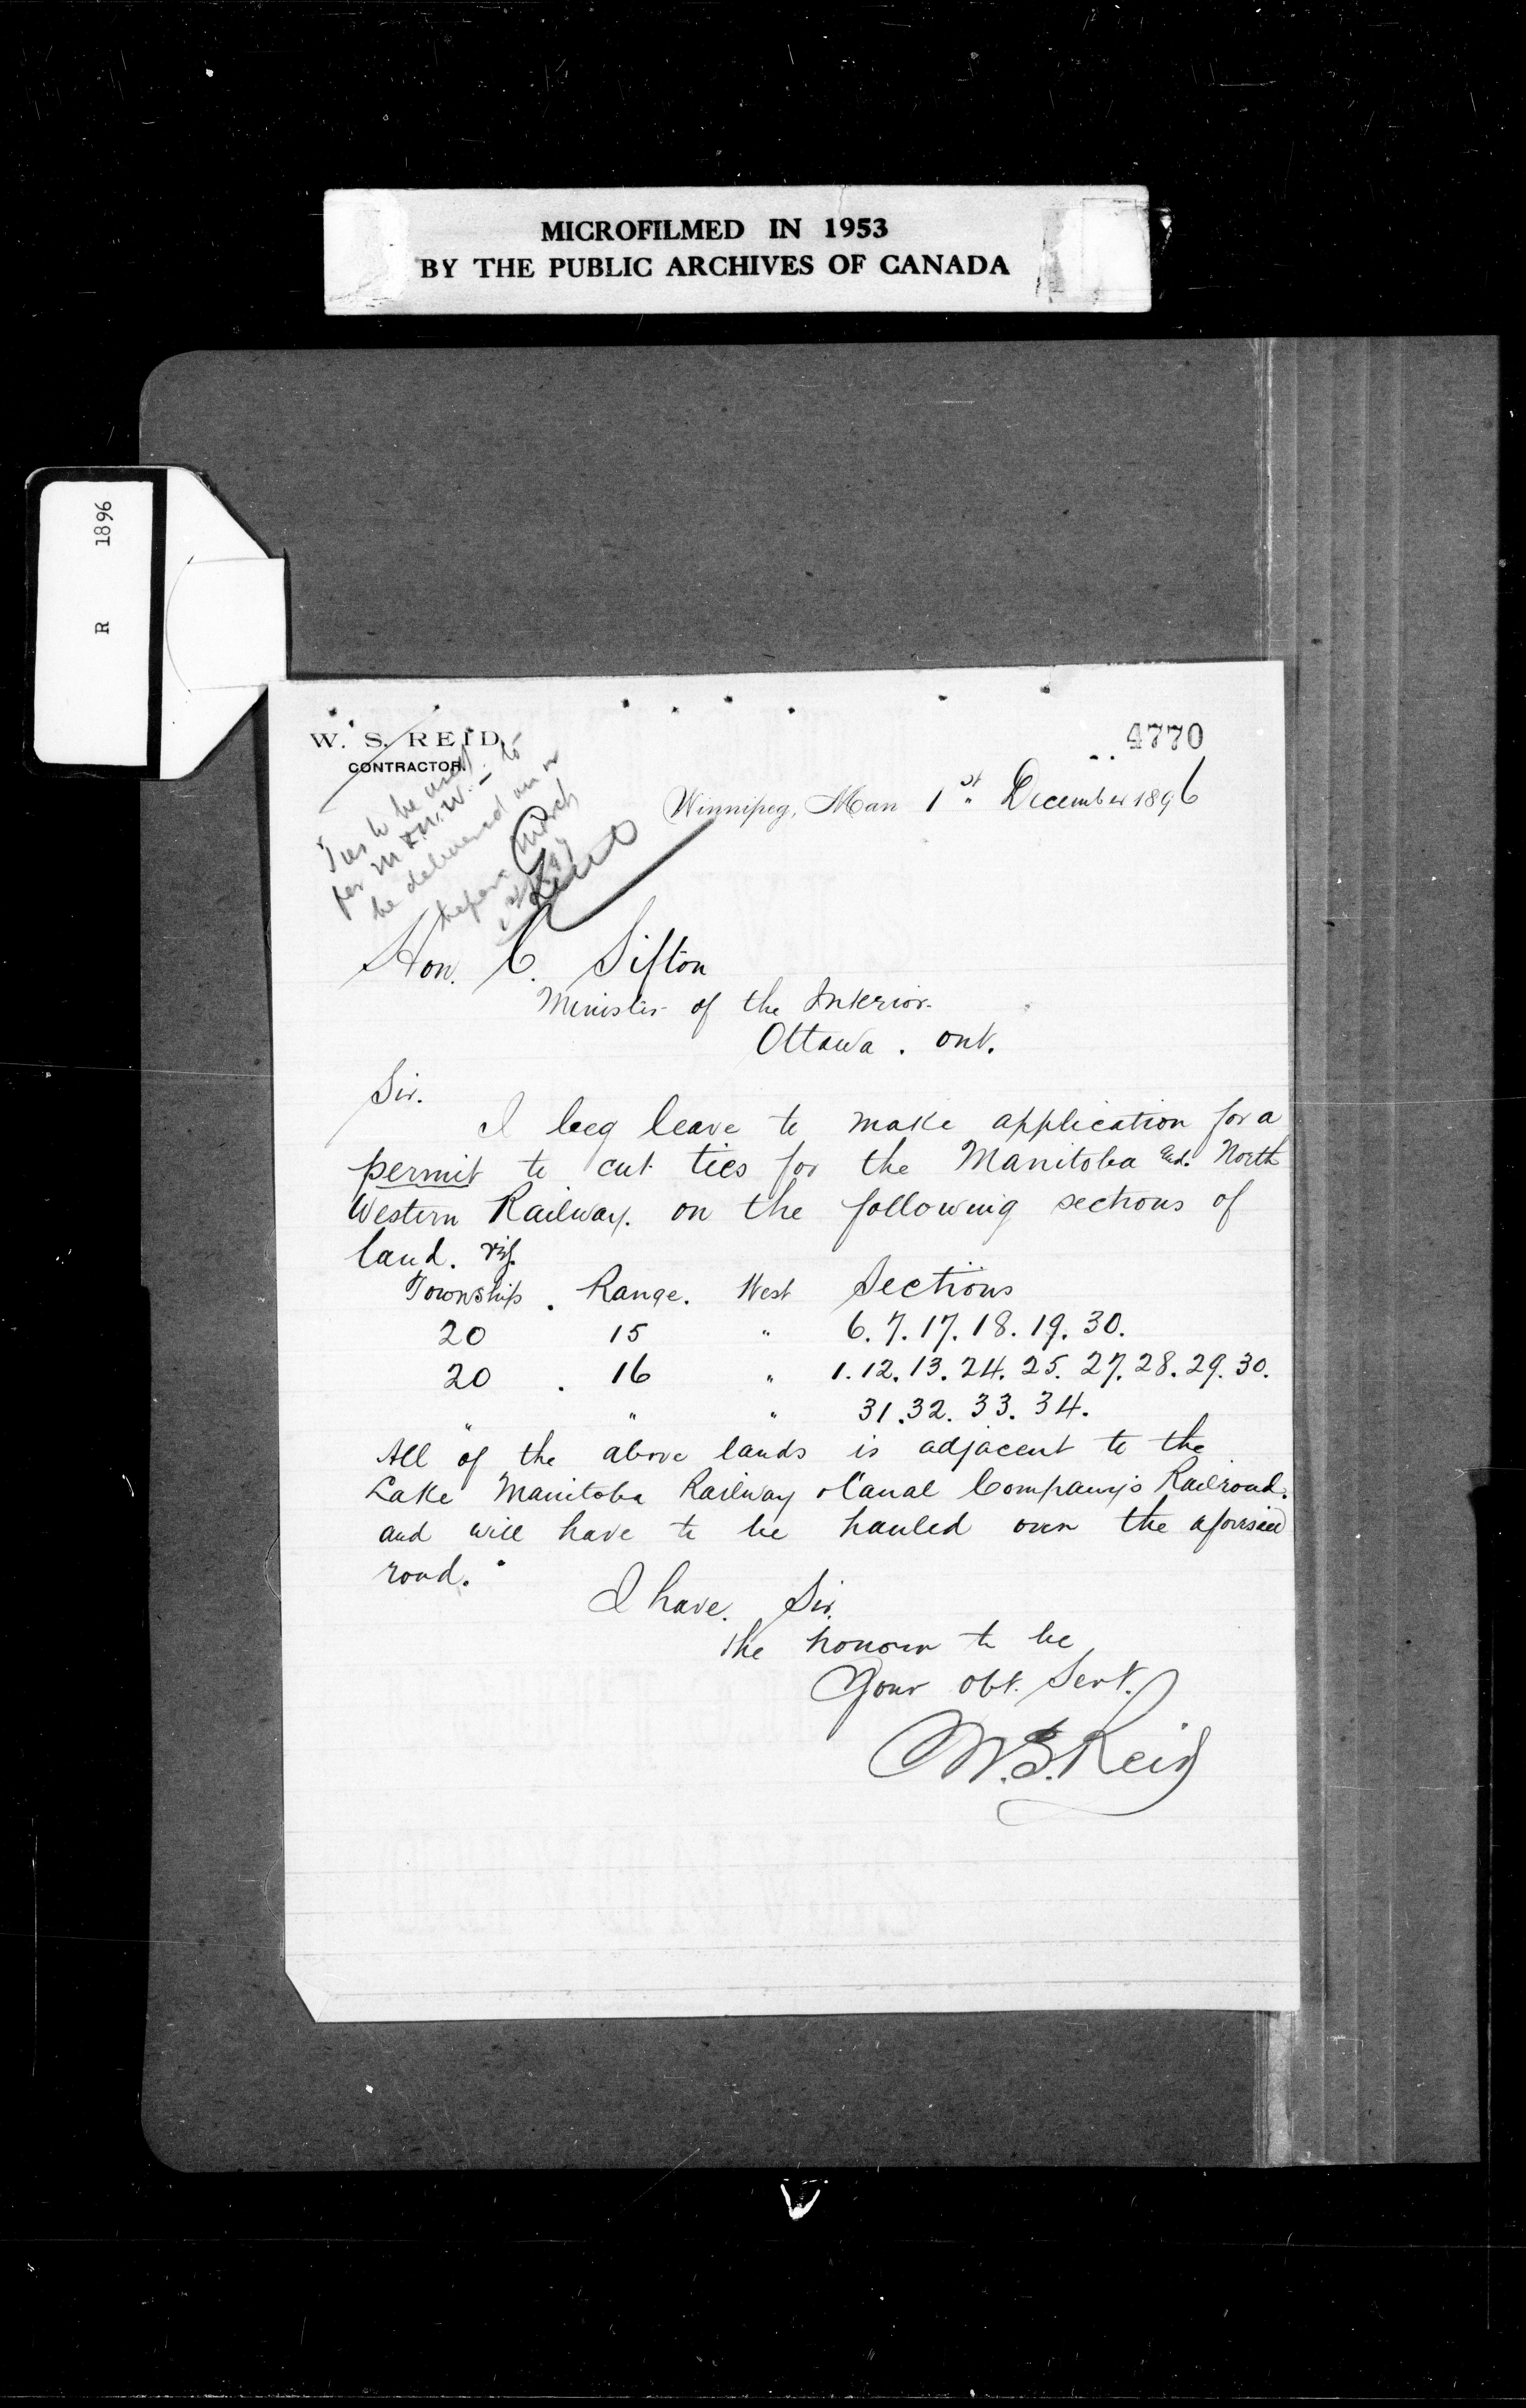 MICROFILMED IN 1953
BY THE PUBLIC ARCHIVES OF CANADA
R 1896
W. S. REID,
CONTRACTOR.
4770
Ties to be used
for M & N.W. – to
be delivered on or
before March
1st
Winnipeg, Man 1st December 1896
Hon. C. Sifton
Minister of the Interior.
Ottawa. Ont.
Sir.
I beg leave to make application for a
permit to cut ties for the Manitoba and North
Western Railway. on the following sections of
land. viz.
Township. Range. West Sections
20 15 " 6. 7. 17. 18. 19. 30.
20 . 16 " 1. 12. 13. 24. 25. 27. 28. 29. 30.
" " " 31. 32. 33. 34.
All of the above lands is adjacent to the
Lake Manitoba Railway & Canal Company's Railroad.
and will have to be hauled over the aforesaid
road.
I have. Sir.
the honour to be
Your obt. Servt.
W. S. Reid